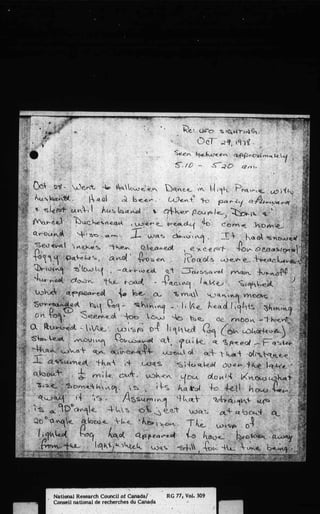 Re: UFO SIGHTING.
Oct 29, 1978.
Seen between approximately
5:10 - 5:20 am.
Oct 28. Went to Hallowe'en Dance in High Prairie with
husband. Had 2 beer. Went to party afterwards
& slept until husband & other couple,
Marcel Duchesneau, were ready to come home
around am. I was driving. It had snowed
several inches then cleared, except for occasional
foggy patches, and frozen roads were treacherous.
Driving slowly, arrived at Joussard main turnoff,
turned down the road - facing lake. Sighted
what appeared to be a small waning moon
surrounded by fog - shining, like headlights shining
on fog. Seemed too low to be moon - Then
a - like wisp of lighted fog (or whatever)
started moving forward at quite a speed - Faster
than what an aircraft would at that distance
I assumed that it was situated over the lake
about ½ mile out. When you don't know what
size something is it's hard to tell how far
away it is. Assuming that straight up
is a 90° angle this object was at about a
20° angle above the horizon. The wisp of
lighted fog had appeared to have broken away
from the light which was still for the time being.
National Research Council of Canada/
Conseil national de recherches du Canada
RG 77, Vol. 309